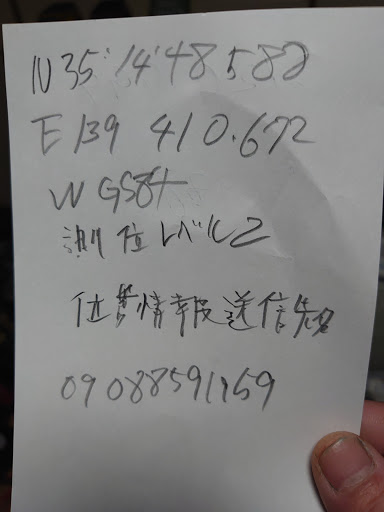 N35°14'48582
E139 410.672
WGS84
測位レベル2
位置情報送信先名
09088591159